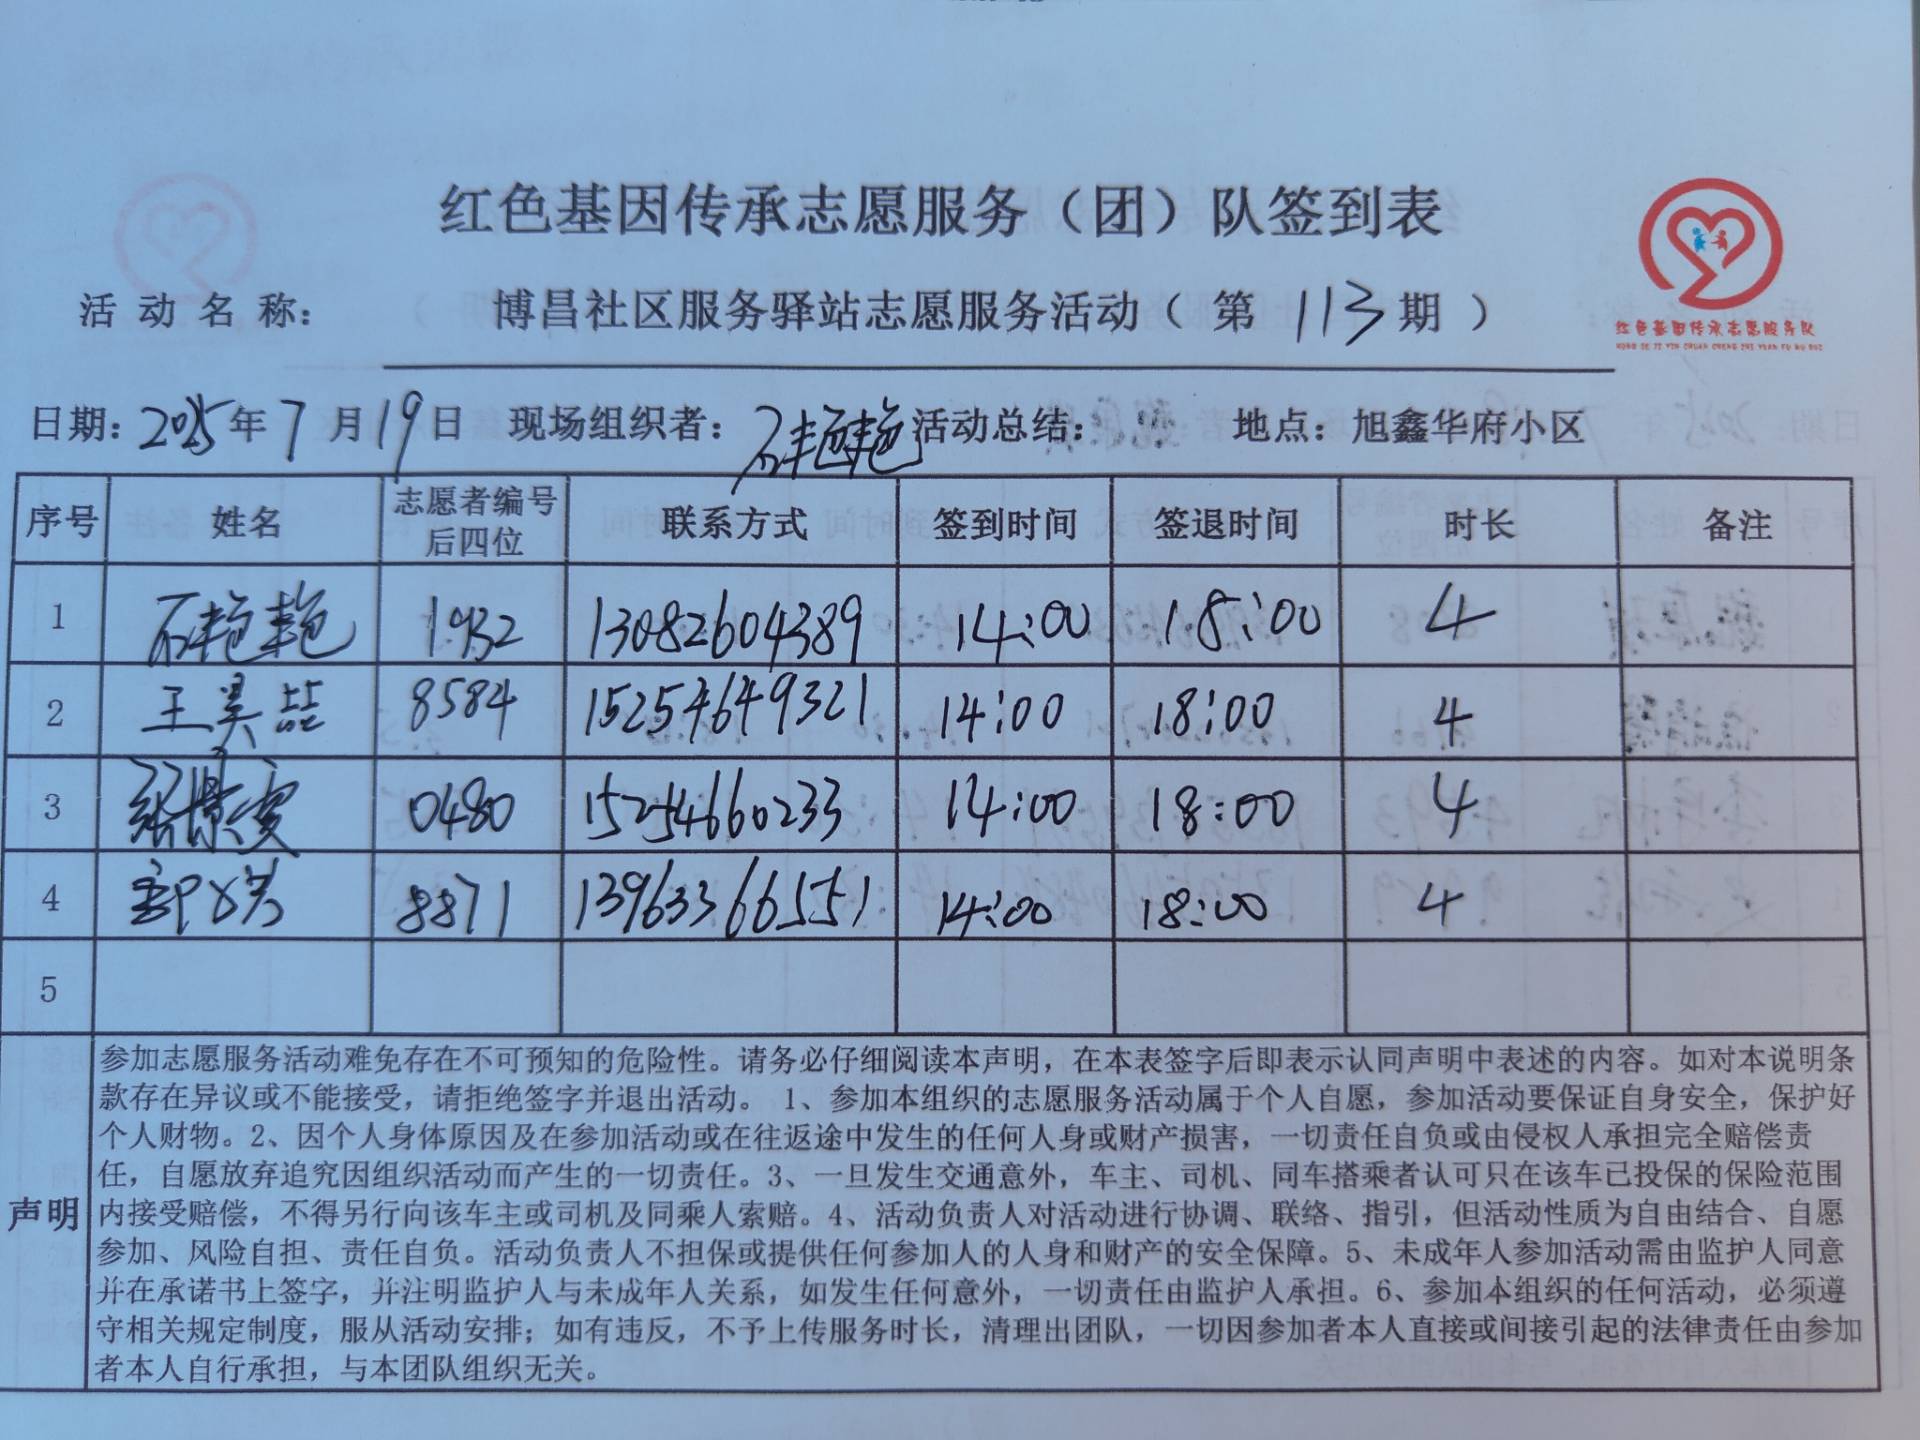 红色基因传承志愿服务（团）队签到表
红色基因传承志愿服务队
HONG SE JI YIN CHUAN CHENG ZHI YUAN FU WU DUI
活动名称： 博昌社区服务驿站志愿服务活动（第113期）
日期：2025年7月19日 现场组织者：石艳艳 活动总结： 地点：旭鑫华府小区
序号 姓名 志愿者编号后四位 联系方式 签到时间 签退时间 时长 备注
1 石艳艳 1932 13082604389 14:00 18:00 4
2 王美喆 8584 15254649321 14:00 18:00 4
3 张景雯 0480 15254660233 14:00 18:00 4
4 8871 13963366551 14:00 18:00 4
5
声明
参加志愿服务活动难免存在不可预知的危险性。请务必仔细阅读本声明，在本表签字后即表示认同声明中表述的内容。如对本说明条
款存在异议或不能接受，请拒绝签字并退出活动。 1、参加本组织的志愿服务活动属于个人自愿，参加活动要保证自身安全，保护好
个人财物。2、因个人身体原因及在参加活动或在往返途中发生的任何人身或财产损害，一切责任自负或由侵权人承担完全赔偿责
任，自愿放弃追究因组织活动而产生的一切责任。3、一旦发生交通意外，车主、司机、同车搭乘者认可只在该车已投保的保险范围
内接受赔偿，不得另行向该车主或司机及同乘人索赔。4、活动负责人对活动进行协调、联络、指引，但活动性质为自由结合、自愿
参加、风险自担、责任自负。活动负责人不担保或提供任何参加人的人身和财产的安全保障。5、未成年人参加活动需由监护人同意
并在承诺书上签字，并注明监护人与未成年人关系，如发生任何意外，一切责任由监护人承担。6、参加本组织的任何活动，必须遵
守相关规定制度，服从活动安排；如有违反，不予上传服务时长，清理出团队，一切因参加者本人直接或间接引起的法律责任由参加
者本人自行承担，与本团队组织无关。